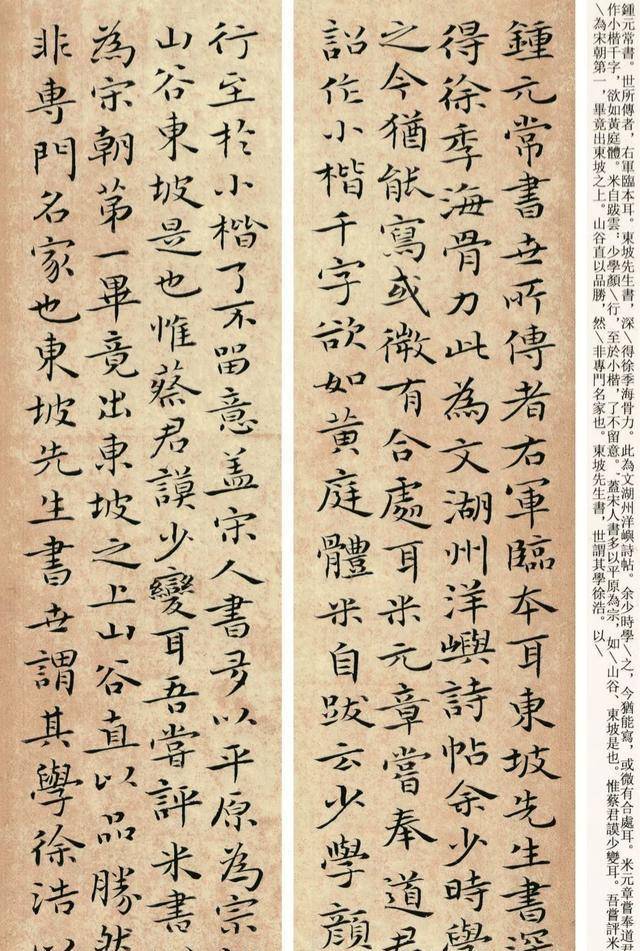 鍾元常書。世所傳者，右軍臨本耳。東坡先生書，深\得徐季海骨力。此為文湖州洋嶼詩帖。余少時學\之，今猶能寫，或微有合處耳。米元章嘗奉道
作小楷千字，欲如黃庭體。米自跋雲，少學顏\行，至於小楷，了不留意。蓋宋人書多以平原為宗，如\山谷、東坡是也。惟蔡君謨少變耳。吾嘗評米
\為宋朝第一，畢竟出東坡之上。山谷直以品勝，然\非專門名家也。東坡先生書，世謂其學徐浩。以\
鍾元常書世所傳者右軍臨本耳東坡先生書深
得徐季海骨力此為文湖州洋嶼詩帖余少時學
之今猶能寫或微有合處耳米元章嘗奉道君
詔作小楷千字欲如黃庭體米自跋云少學顏
行至於小楷了不留意蓋宋人書多以平原為宗
山谷東坡是也惟蔡君謨少變耳吾嘗評米書
為宋朝第一畢竟出東坡之上山谷直以品勝然
非專門名家也東坡先生書世謂其學徐浩以